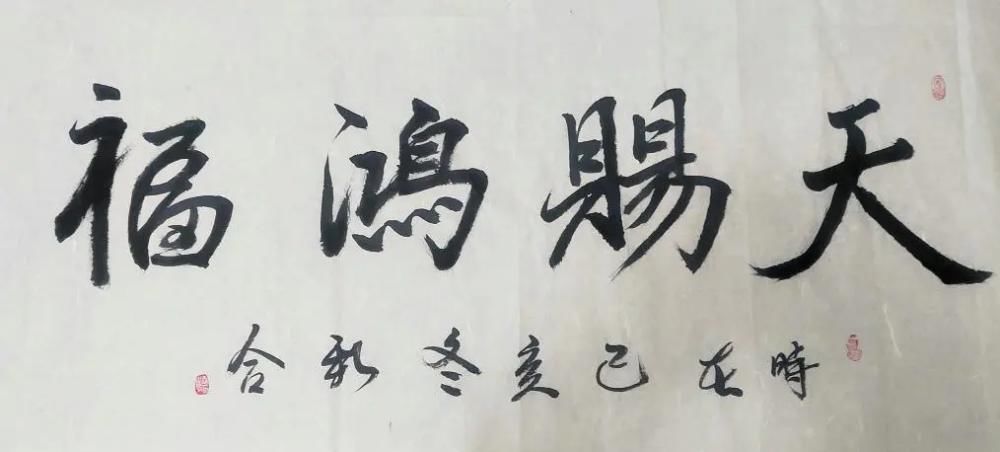 天賜鴻福
時在己亥冬新合